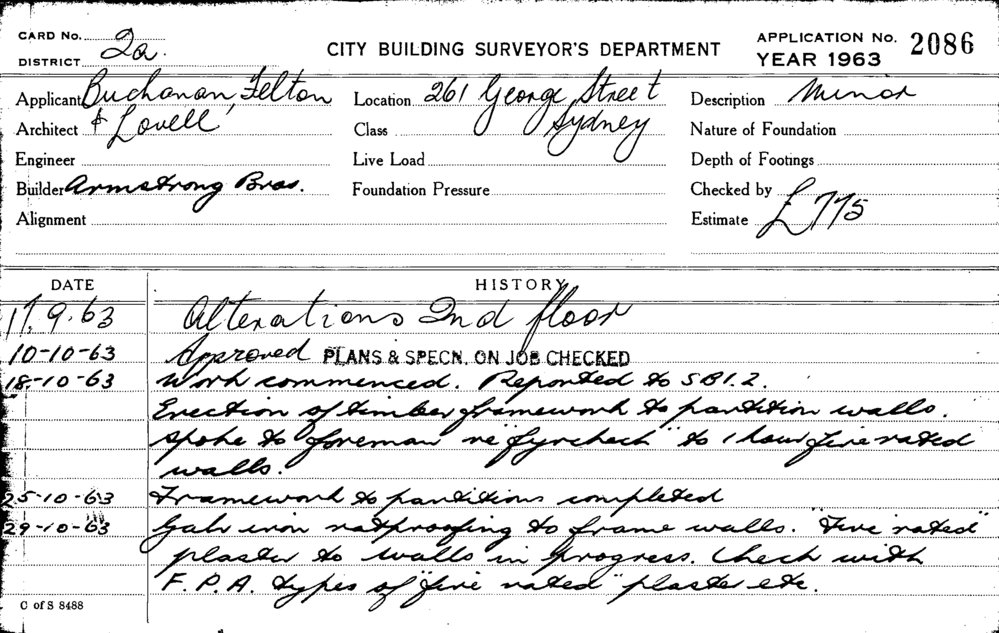 CARD No. 2a.
DISTRICT
CITY BUILDING SURVEYOR'S DEPARTMENT
APPLICATION No. 2086
YEAR 1963
Applicant Buchanan, Felton
Architect & Lovell
Engineer
Builder Armstrong Bros.
Alignment
Location 261 George Street
Sydney
Class
Live Load
Foundation Pressure
Description Minor
Nature of Foundation
Depth of Footings
Checked by
Estimate £775
DATE HISTORY
17.9.63 Alterations 2nd floor
10-10-63 Approved PLANS & SPECN. ON JOB CHECKED
18-10-63 Work commenced. Reported to SBI.2.
Erection of timber framework to partition walls.
Spoke to foreman re "fyrcheck" to 1 hour fire rated
walls.
25-10-63 Framework to partitions completed
29-10-63 Galv iron ratproofing to frame walls. "Fire rated"
plaster to walls in progress. Check with
F.P.A. types of "fire rated" plaster etc.
C of S 8488